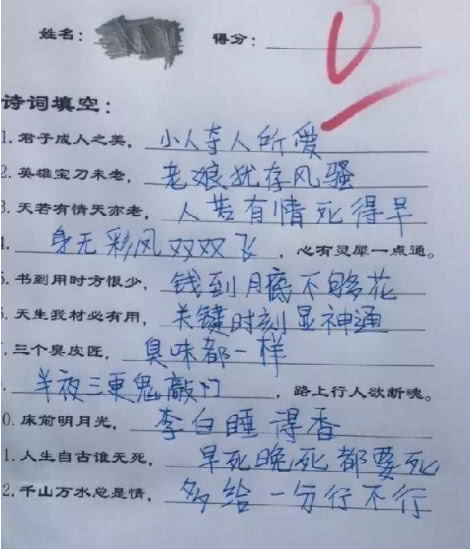 姓名： 得分： 0
诗词填空：
1. 君子成人之美，小人夺人所爱
2. 英雄宝刀未老，老娘犹存风骚
3. 天若有情天亦老，人若有情死得早
4. 身无彩凤双双飞，心有灵犀一点通。
5. 书到用时方恨少，钱到月底不够花
6. 天生我材必有用，关键时刻显神通
7. 三个臭皮匠，臭味都一样
半夜三更鬼敲门，路上行人欲断魂。
0. 床前明月光，李白睡得香
1. 人生自古谁无死，早死晚死都要死
2. 千山万水总是情，多给一分行不行